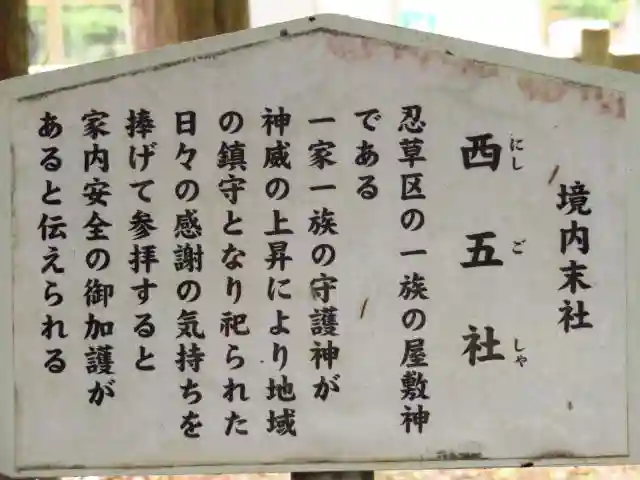 境内末社
西五社
にしごしゃ
忍草区の一族の屋敷神
である
一家一族の守護神が
神威の上昇により地域
の鎮守となり祀られた
日々の感謝の気持ちを
捧げて参拝すると
家内安全の御加護が
あると伝えられる